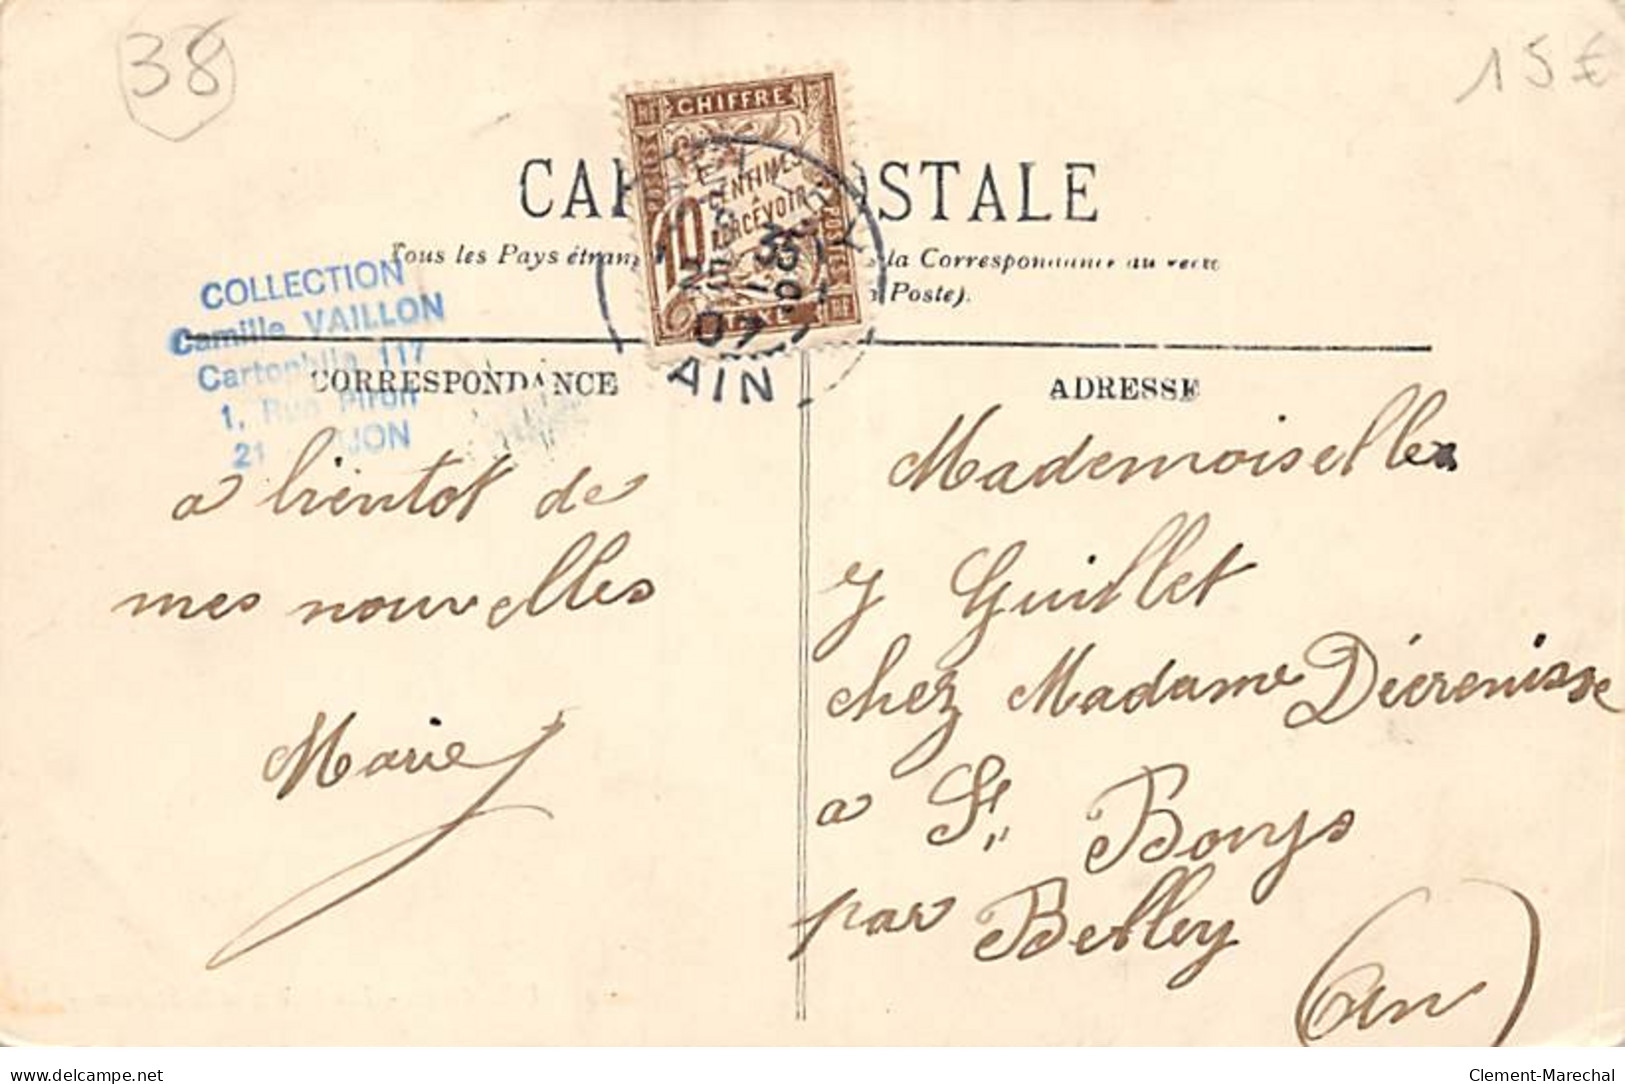 38
15€
CHIFFRE
CENTIMES
À
PERCEVOIR
10
POSTES
TAXE
07
AIN
CARTE POSTALE
Tous les Pays étran la Correspondance au recto
Poste).
COLLECTION
Camille VAILLON
Cartophile 117
1, Rue Piron
21 DIJON
CORRESPONDANCE
ADRESSE
a bientot de
mes nouvelles
Marie
Mademoiselle
Guillet
chez Madame
a St Bonys
par Belley
(Ain)
www.delcampe.net
Clement-Marechal